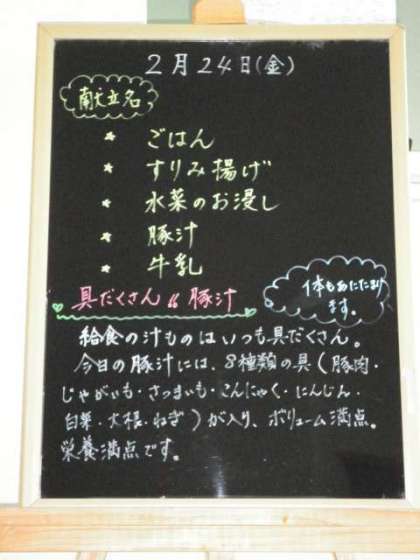 2月24日(金)
献立名
* ごはん
* すりみ揚げ
* 水菜のお浸し
* 豚汁
* 牛乳
具だくさん〝豚汁
体もあたたまり
ます。
給食の汁ものはいつも具だくさん。
今日の豚汁には、8種類の具(豚肉・
じゃがいも・さつまいも・こんにゃく・にんじん・
白菜・大根・ねぎ)が入り、ボリューム満点。
栄養満点です。